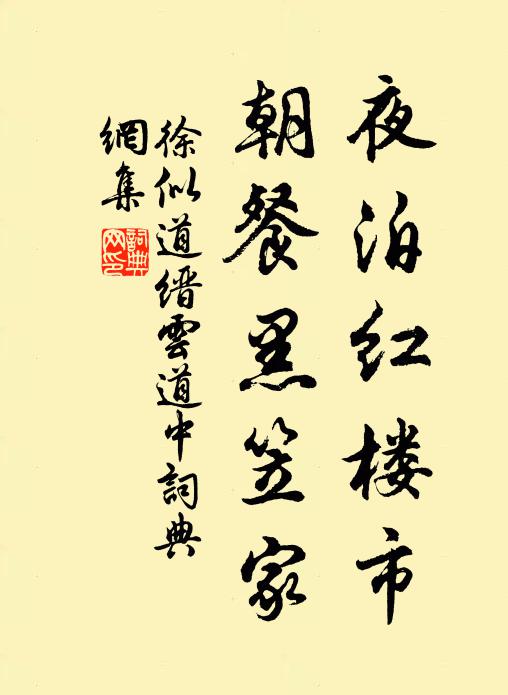 夜泊红楼市
朝餐黑笠家
徐似道缙雲道中詞典
網集
詞典
网印